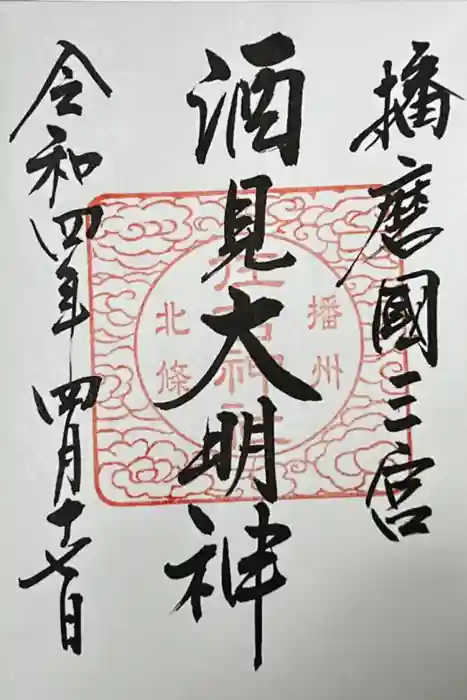 播磨國三宮
酒見大明神
播州
住吉神社
北條
令和四年四月十七日